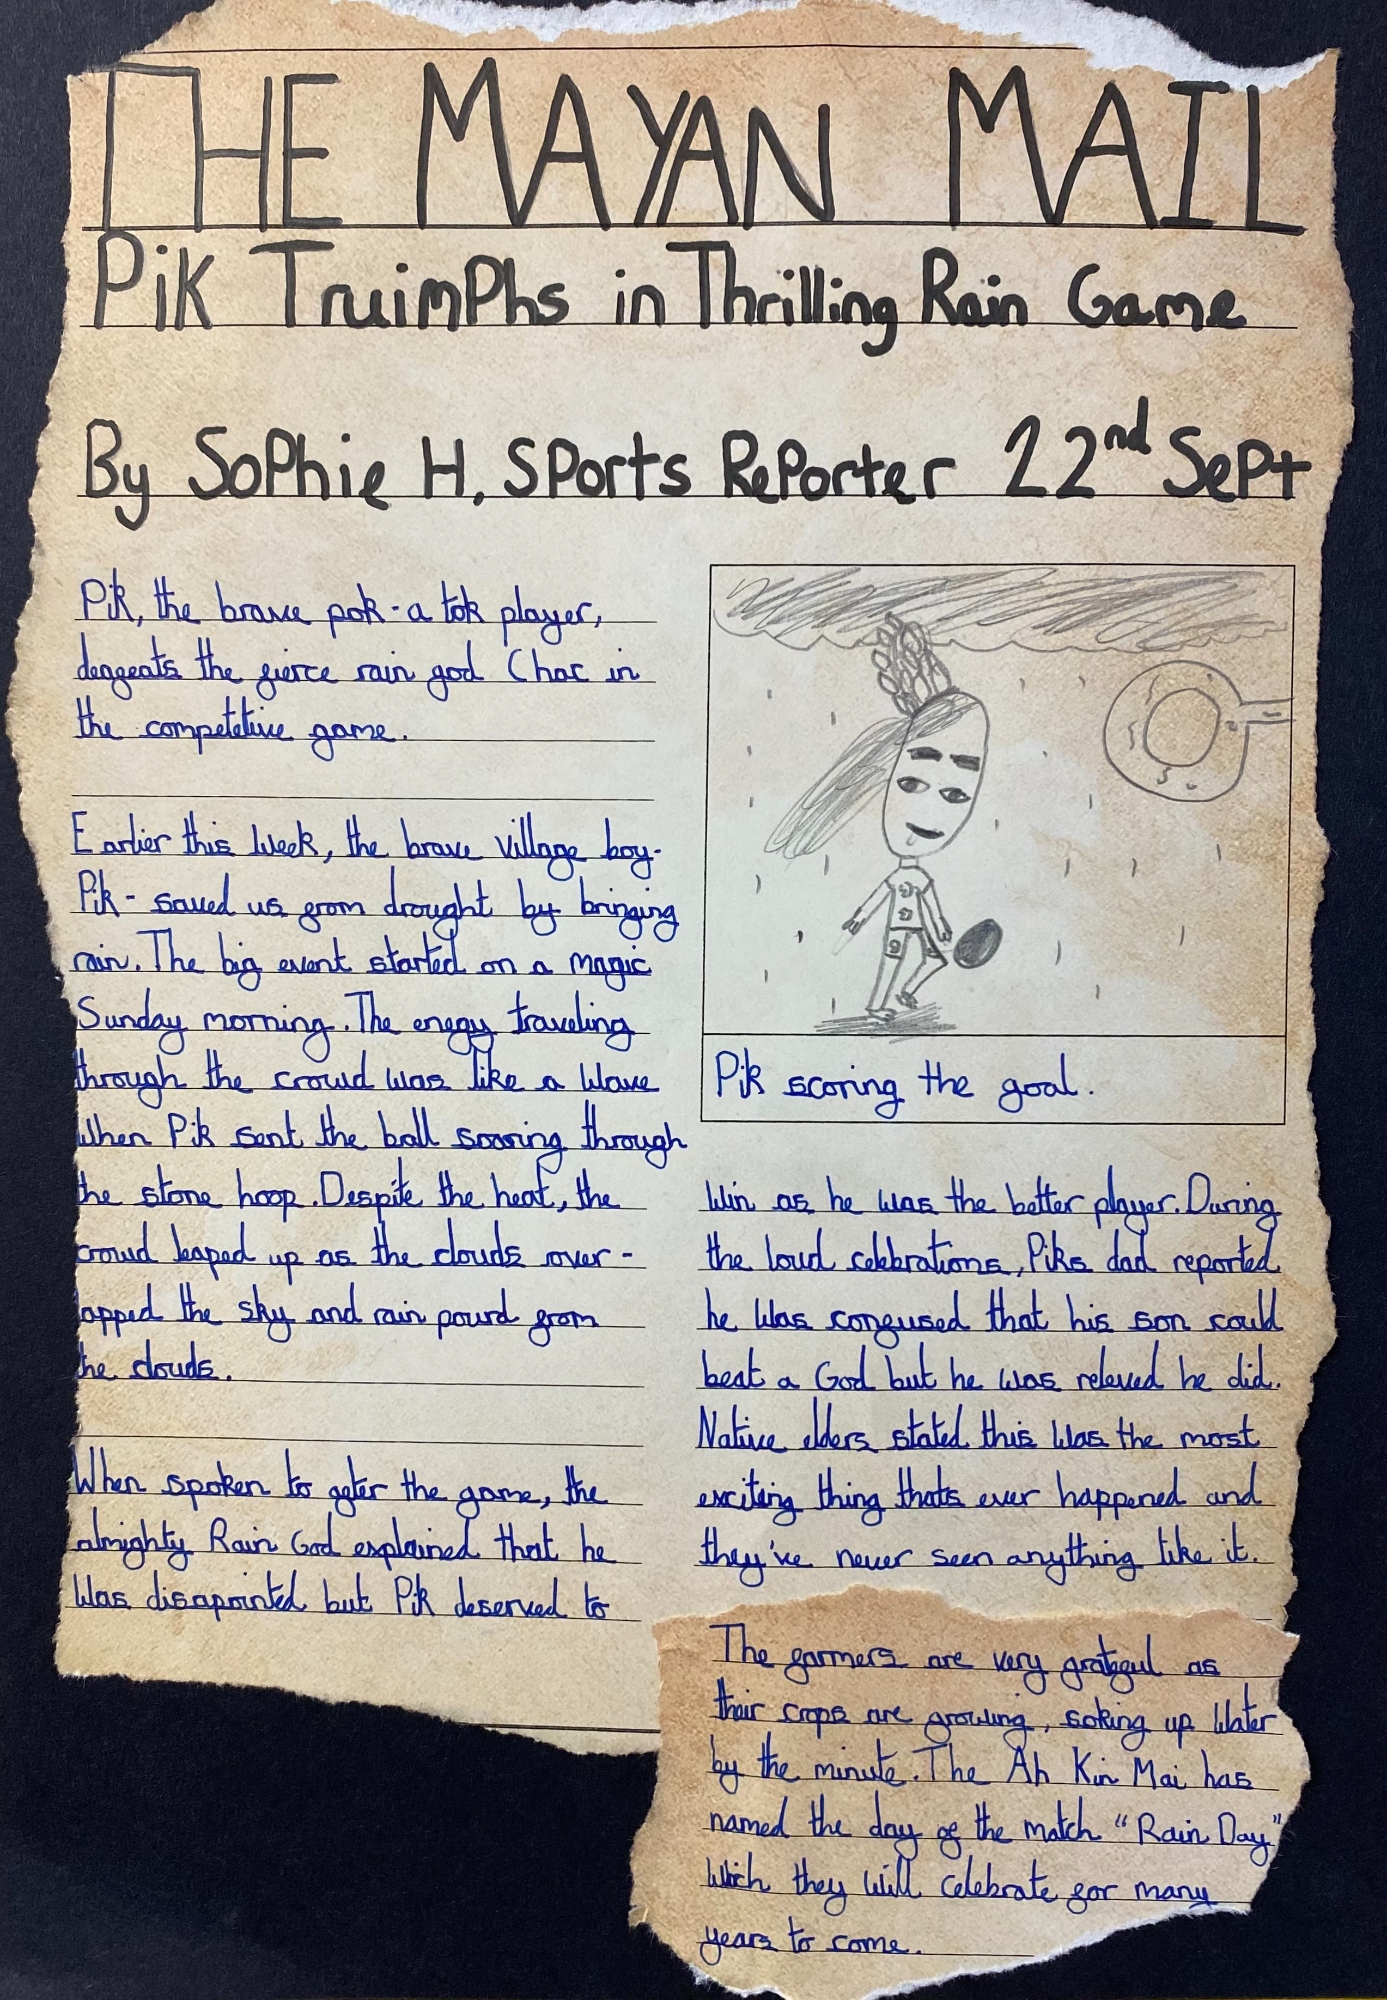 THE MAYAN MAIL
Pik Truimphs in Thrilling Rain Game
By Sophie H, Sports Reporter 22nd Sept
Pik, the brave pok-a tok player,
deafeats the fierce rain god Chac in
the competetive game.
Earlier this week, the brave village boy-
Pik - saved us from drought by bringing
rain. The big event started on a magic
Sunday morning. The enegy traveling
through the crowd was like a wave
when Pik sent the ball soaring through
the stone hoop. Despite the heat, the
crowd leaped up as the clouds over -
lapped the sky and rain pourd from
the clouds.
When spoken to after the game, the
almighty Rain God explained that he
was disapointed but Pik deserved to
Pik scoring the goal.
win as he was the better player. During
the loud celebrations, Piks dad reported
he was confused that his son could
beat a God but he was releved he did.
Native elders stated this was the most
exciting thing thats ever happened and
they've never seen anything like it.
The farmers are very grateful as
their crops are growing, soking up water
by the minute. The Ah Kin Mai has
named the day of the match "Rain Day"
which they will celebrate for many
years to come.